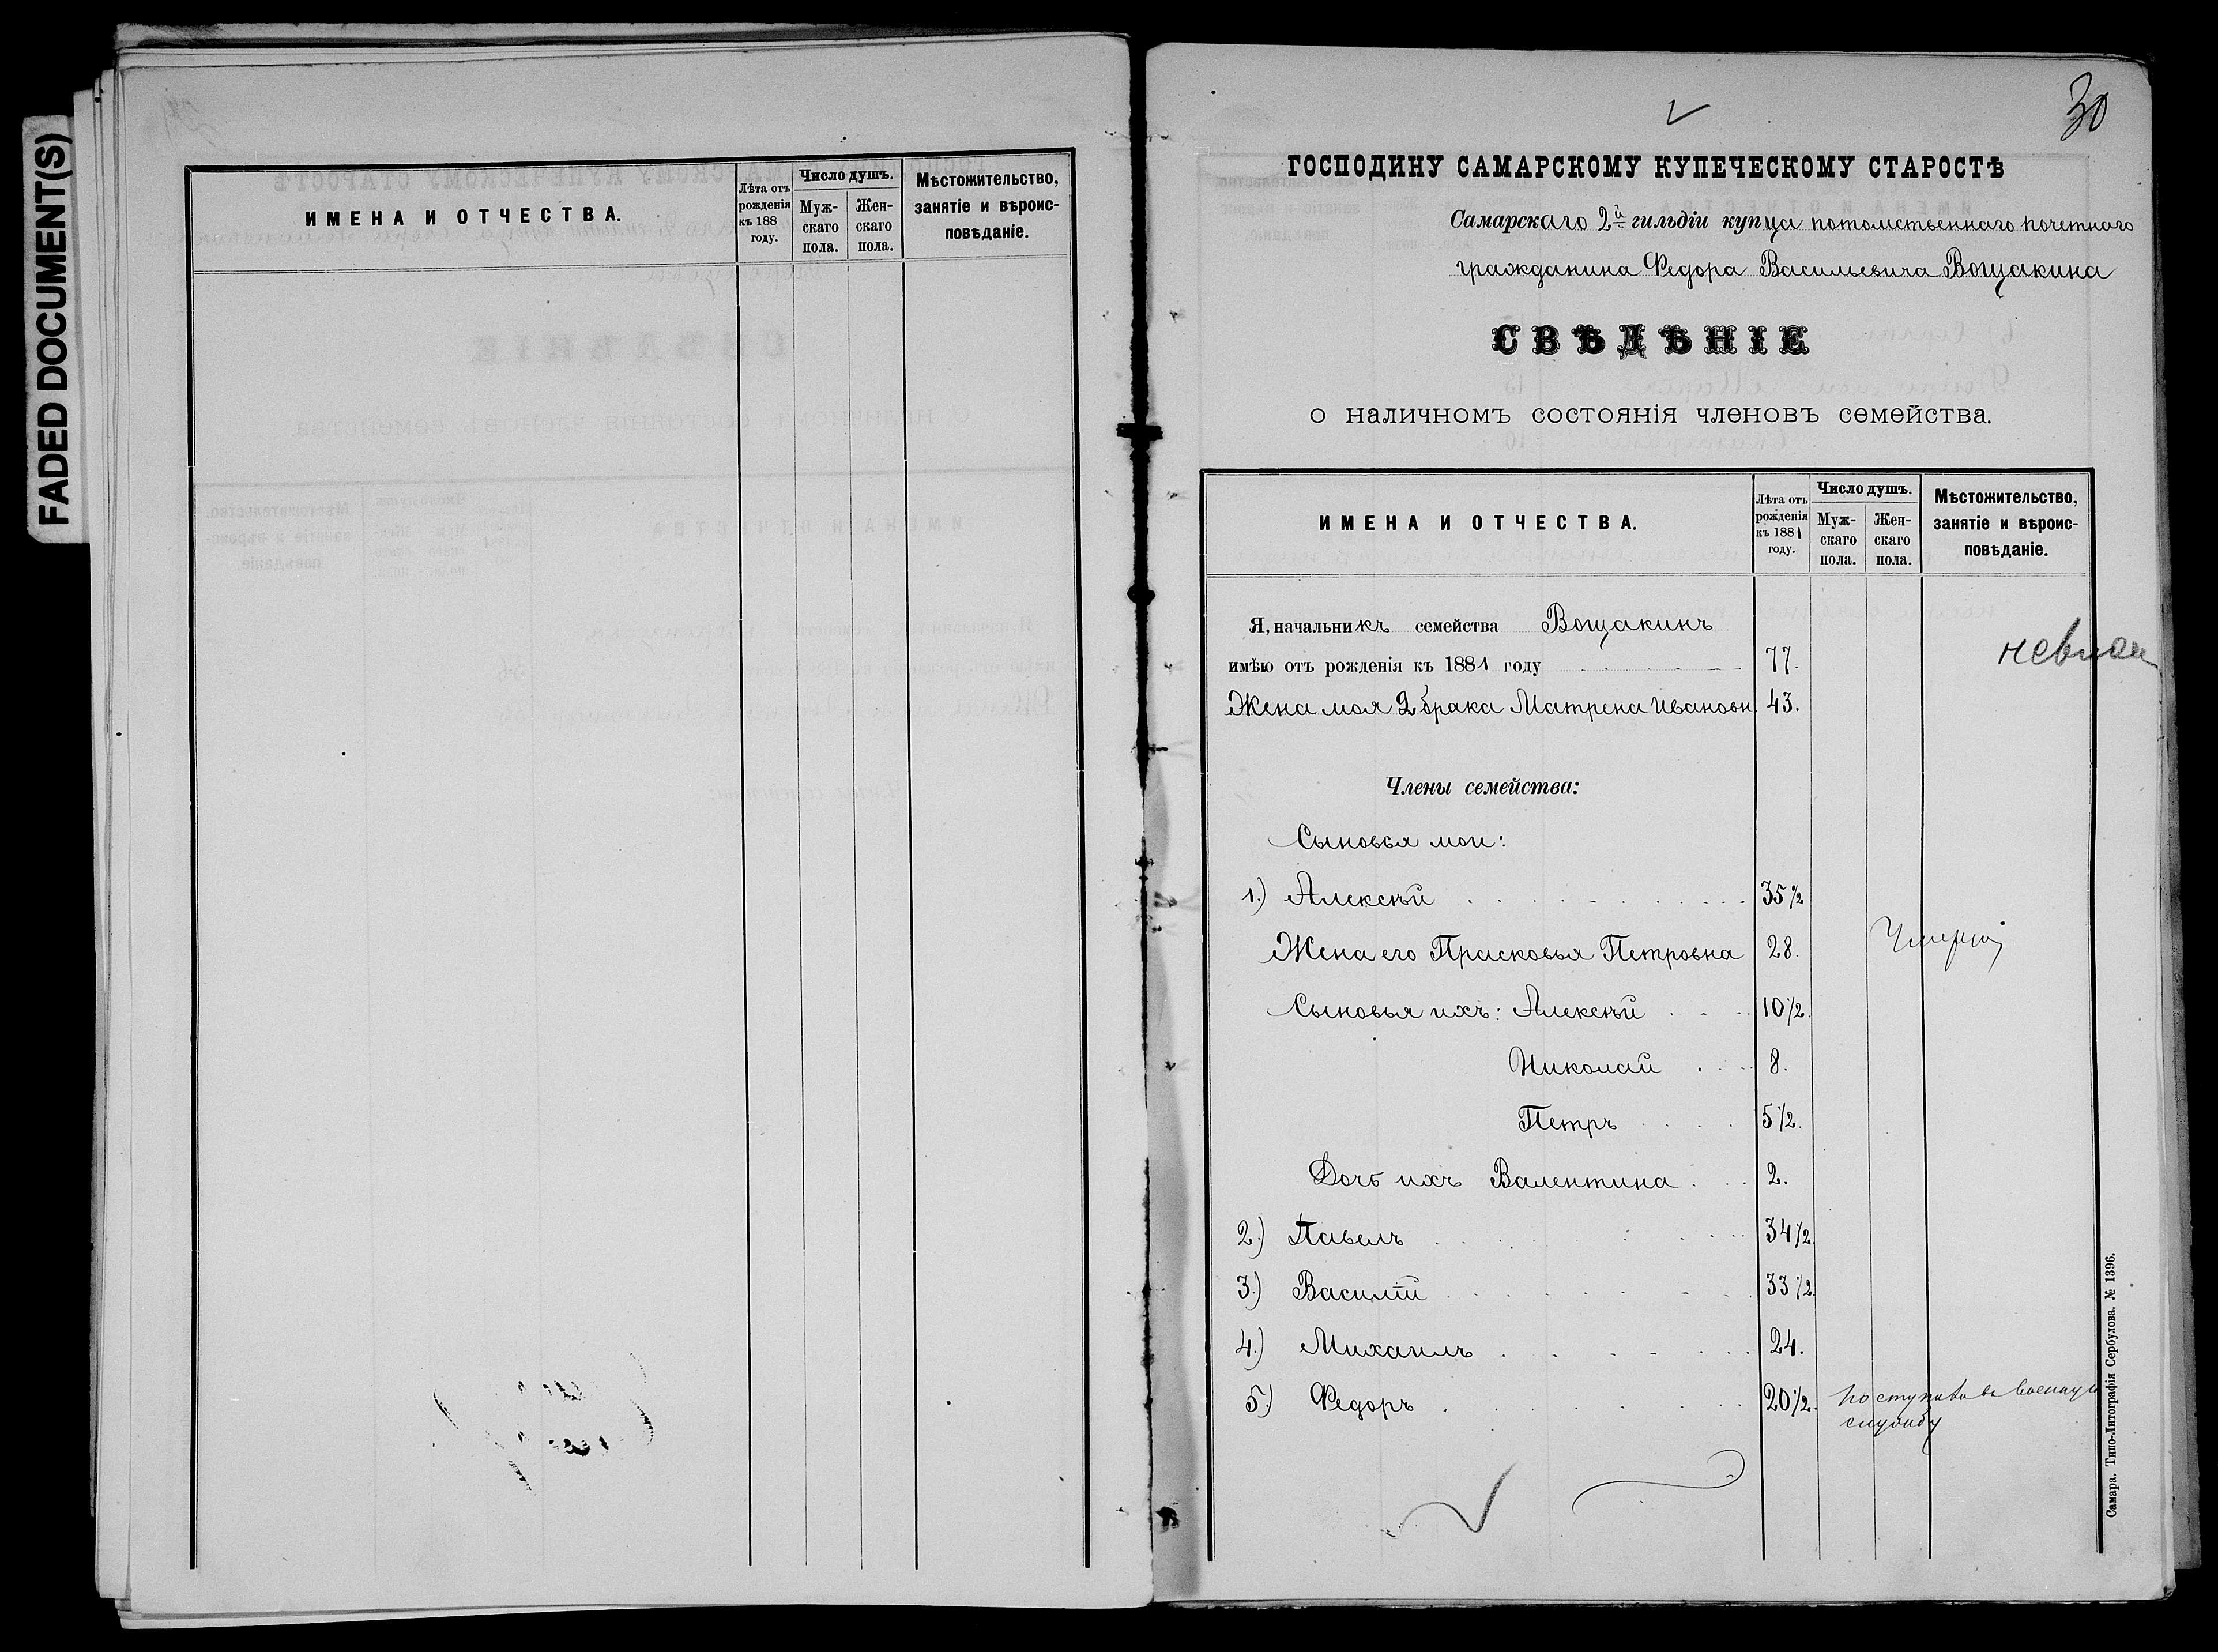 FADED DOCUMENT(S)
ИМЕНА И ОТЧЕСТВА.
Лѣта отъ рожденія къ 188 году.
Число душъ.
Мужскаго пола.
Женскаго пола.
Мѣстожительство, занятіе и вѣроисповѣданіе.
30
ГОСПОДИНУ САМАРСКОМУ КУПЕЧЕСКОМУ СТАРОСТѢ
Самарскаго 2й гильдіи купца потомственнаго почетнаго
гражданина Федора Васильевича Вощакина
СВѢДѢНІЕ
о наличномъ состоянія членовъ семейства.
ИМЕНА И ОТЧЕСТВА.
Лѣта отъ рожденія къ 1881 году.
Число душъ.
Мужскаго пола.
Женскаго пола.
Мѣстожительство, занятіе и вѣроисповѣданіе.
Я, начальникъ семейства Вощакинъ
имѣю отъ рожденія къ 1881 году 77.
Жена моя 2 брака Матрена Ивановн 43.
Члены семейства:
Сыновья мои:
1.) Алексѣй 35 1/2
Жена его Прасковья Петровна 28.
Сыновья ихъ: Алексѣй 10 1/2.
Николай 8.
Петръ 5 1/2.
Дочь ихъ Валентина 2.
2.) Павелъ 34 1/2
3.) Василій 33 1/2.
4.) Михаилъ 24.
5.) Федоръ 20 1/2. военную
службу
Самара. Типо-Литографія Сербулова. № 1396.